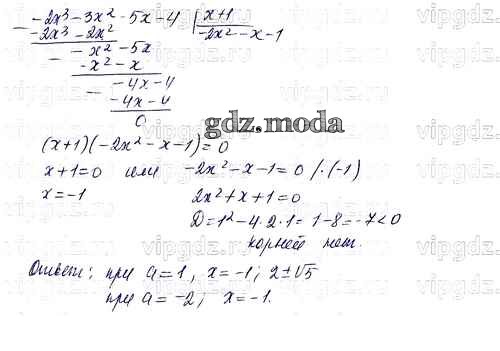 -2x³ - 3x² - 5x - 4 | x+1
-2x³ - 2x² | -2x² - x - 1
- x² - 5x
- x² - x
- 4x - 4
- 4x - 4
0
gdz.moda
(x+1)(-2x² - x - 1) = 0
x+1=0 или -2x² - x - 1 = 0 /·(-1)
x = -1 2x² + x + 1 = 0
D = 1² - 4·2·1 = 1 - 8 = -7 < 0
корней нет.
Ответ: при a = 1, x = -1; 2±√5
при a = -2; x = -1.
vipgdz.ru